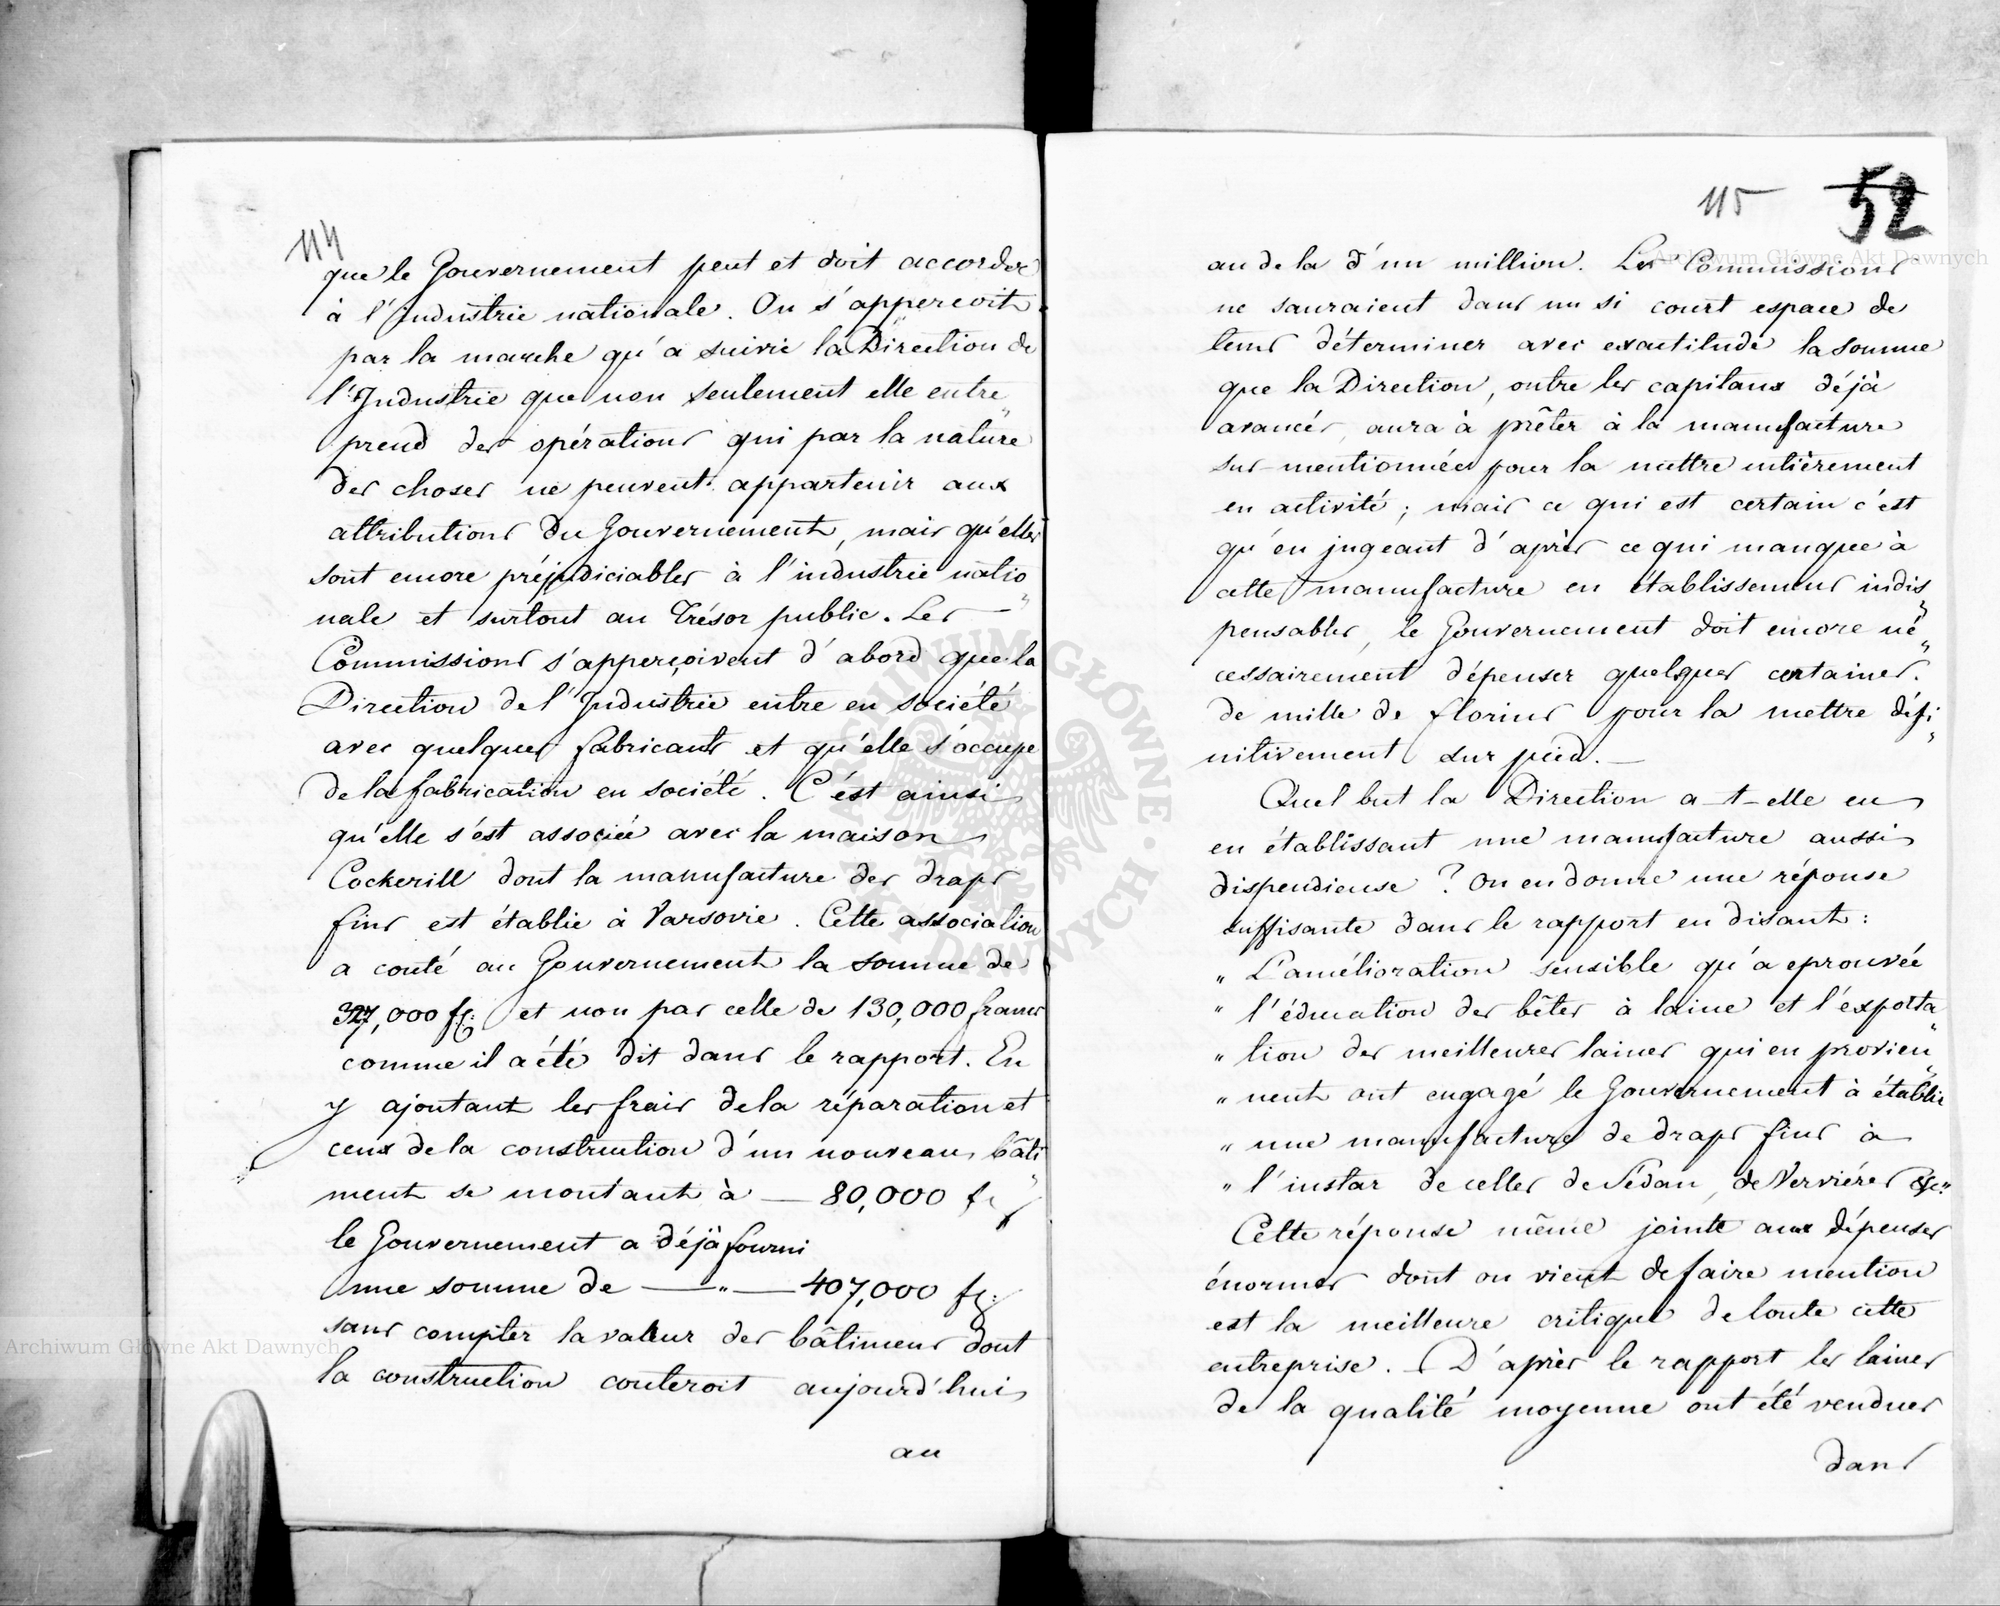 114
que le Gouvernement peut et doit accorder
à l'Industrie nationale. On s'apperçoit
par la marche qu'a suivie la Direction de
l'Industrie que non seulement elle entre„
prend des opérations qui par la nature
des choses ne peuvent appartenir aux
attributions du Gouvernement, mais qu'elles
sont encore préjudiciables à l'industrie natio„
nale et surtout au Trésor public. Les
Commissions s'apperçoivent d'abord que la
Direction de l'Industrie entre en société
avec quelques fabricants et qu'elle s'occupe
de la fabrication en société. C'est ainsi
qu'elle s'est associée avec la maison
Cockerill dont la manufacture des draps
fins est établie à Varsovie. Cette association
a couté au Gouvernement la somme de
327,000 fl: et non pas celle de 130,000 francs
comme il a été dit dans le rapport. En
y ajoutant les frais de la réparation et
ceux de la construction d'un nouveau bâti„
ment se montant à — 80,000 fl
le Gouvernement a déjà fourni
une somme de — „ — 407,000 fl:
sans compter la valeur des bâtimens dont
la construction couteroit aujourd'hui
au
115 52
au de la d'un million. Les Commissions
ne sauraient dans un si court espace de
tems déterminer avec exactitude la somme
que la Direction, outre les capitaux déjà
avancés, aura à prêter à la manufacture
sus-mentionnée pour la mettre entièrement
en activité; mais ce qui est certain c'est
qu'en jugeant d'après ce qui manque à
cette manufacture en établissemens indis„
pensables, le Gouvernement doit encore né„
cessairement dépenser quelques centaines
de mille de florins pour la mettre défi„
nitivement sur pied. —
Quel but la Direction a-t-elle eu
en établissant une manufacture aussi
dispendieuse? On en donne une réponse
suffisante dans le rapport en disant:
„ L'amélioration sensible qu'a eprouvée
„ l'éducation des bêtes à laine et l'exporta„
„ tion des meilleures laines qui en provien„
„ nent ont engagé le Gouvernement à établir
„ une manufacture de draps fins à
„ l'instar de celles de Sédan, de Verviéres &c"
Cette réponse même jointe aux dépenses
énormes dont on vient de faire mention
est la meilleure critique de toute cette
entreprise. — D'après le rapport les laines
de la qualité moyenne ont été vendues
dans
Archiwum Główne Akt Dawnych
Archiwum Główne Akt Dawnych
ARCHIWUM GŁÓWNE AKT DAWNYCH